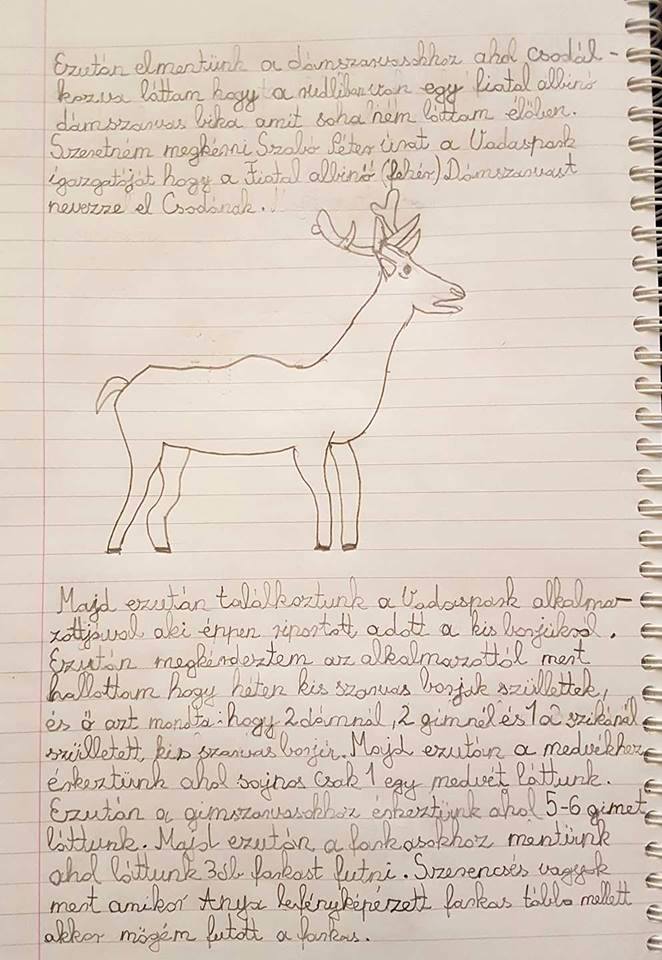 Ezután elmentünk a dámszarvasokhoz ahol csodál-
kozva láttam hogy a rudliban van egy fiatal albinó
dámszarvas bika amit soha ném láttam élőben.
Szeretném megkérni Szabó Péter urat a Vadaspark
igazgatóját hogy a Fiatal albinó (fehér) Dámszarvast
nevezze el Csodának.
Majd ezután találkoztunk a Vadaspark alkalma-
zottjával aki éppen riportott adott a kis borjúkról.
Ezután megkérdeztem az alkalmazottól mert
hallottam hogy héten kis szarvas borjak szüllettek,
és ő azt monta: hogy 2 dámnál, 2 gimnél és 1 a szikánál
szülletett kis szarvas borjú. Majd ezután a medvékhez
érkeztünk ahol sajnos csak 1 egy medvét láttunk.
Ezután a gimszarvasokhoz érkeztünk ahol 5-6 gimet
láttunk. Majd ezután a farkasokhoz mentünk
ahol láttunk 3ól farkast futni. Szerencsés vagyok
mert amikor Anya lefényképérzett farkas tábla mellett
akkor mögém futott a farkas.